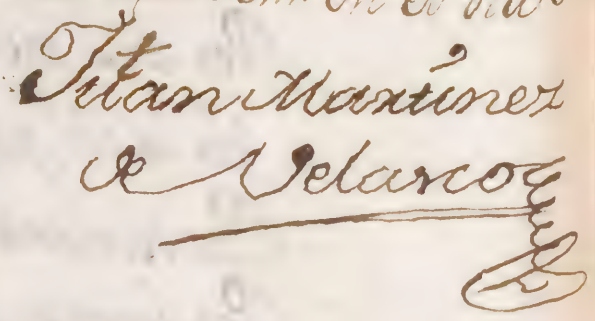 Titan Martínez
de Velasco